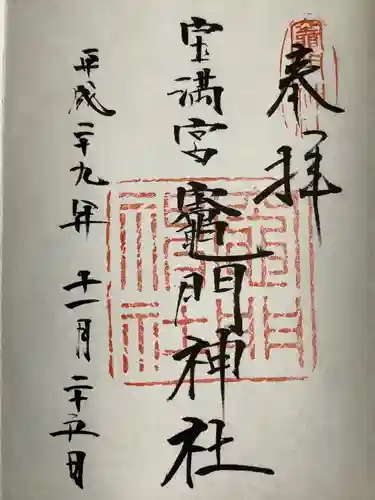 奉拝
宝満宮 竈門神社
平成二十九年 十一月 二十五日